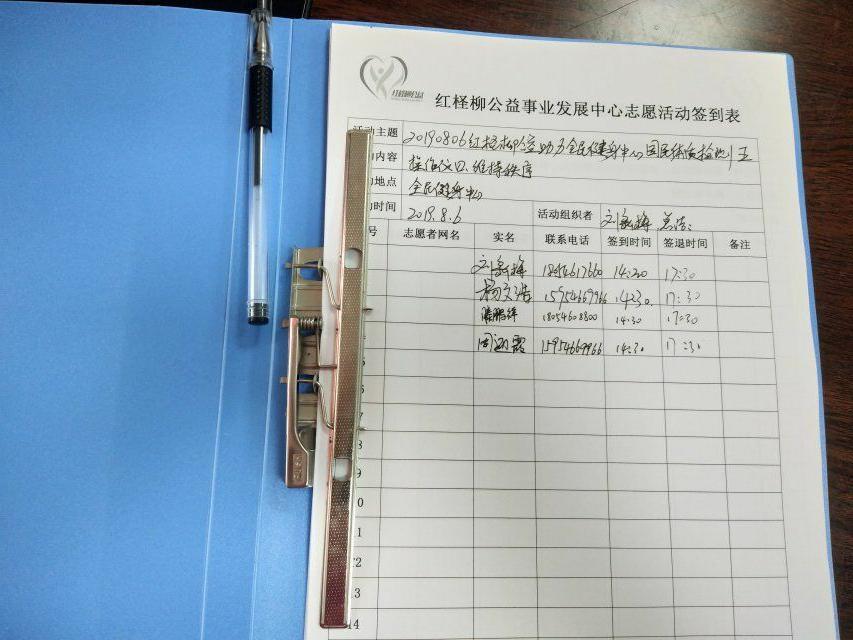 红柽柳公益
红柽柳公益事业发展中心志愿活动签到表
活动主题 20190806红柽柳公益助力全民健身中心国民体质检测
内容 操作仪器、维持秩序
地点 全民健身中心
时间 2019.8.6 活动组织者
号 志愿者网名 实名 联系电话 签到时间 签退时间 备注
18954617660 14:30 17:30
杨文浩 15954669966 14:30. 17:30
18054608800 14:30 17:30
15954669966 14:30 17:30
8
9
0
1
12
13
14